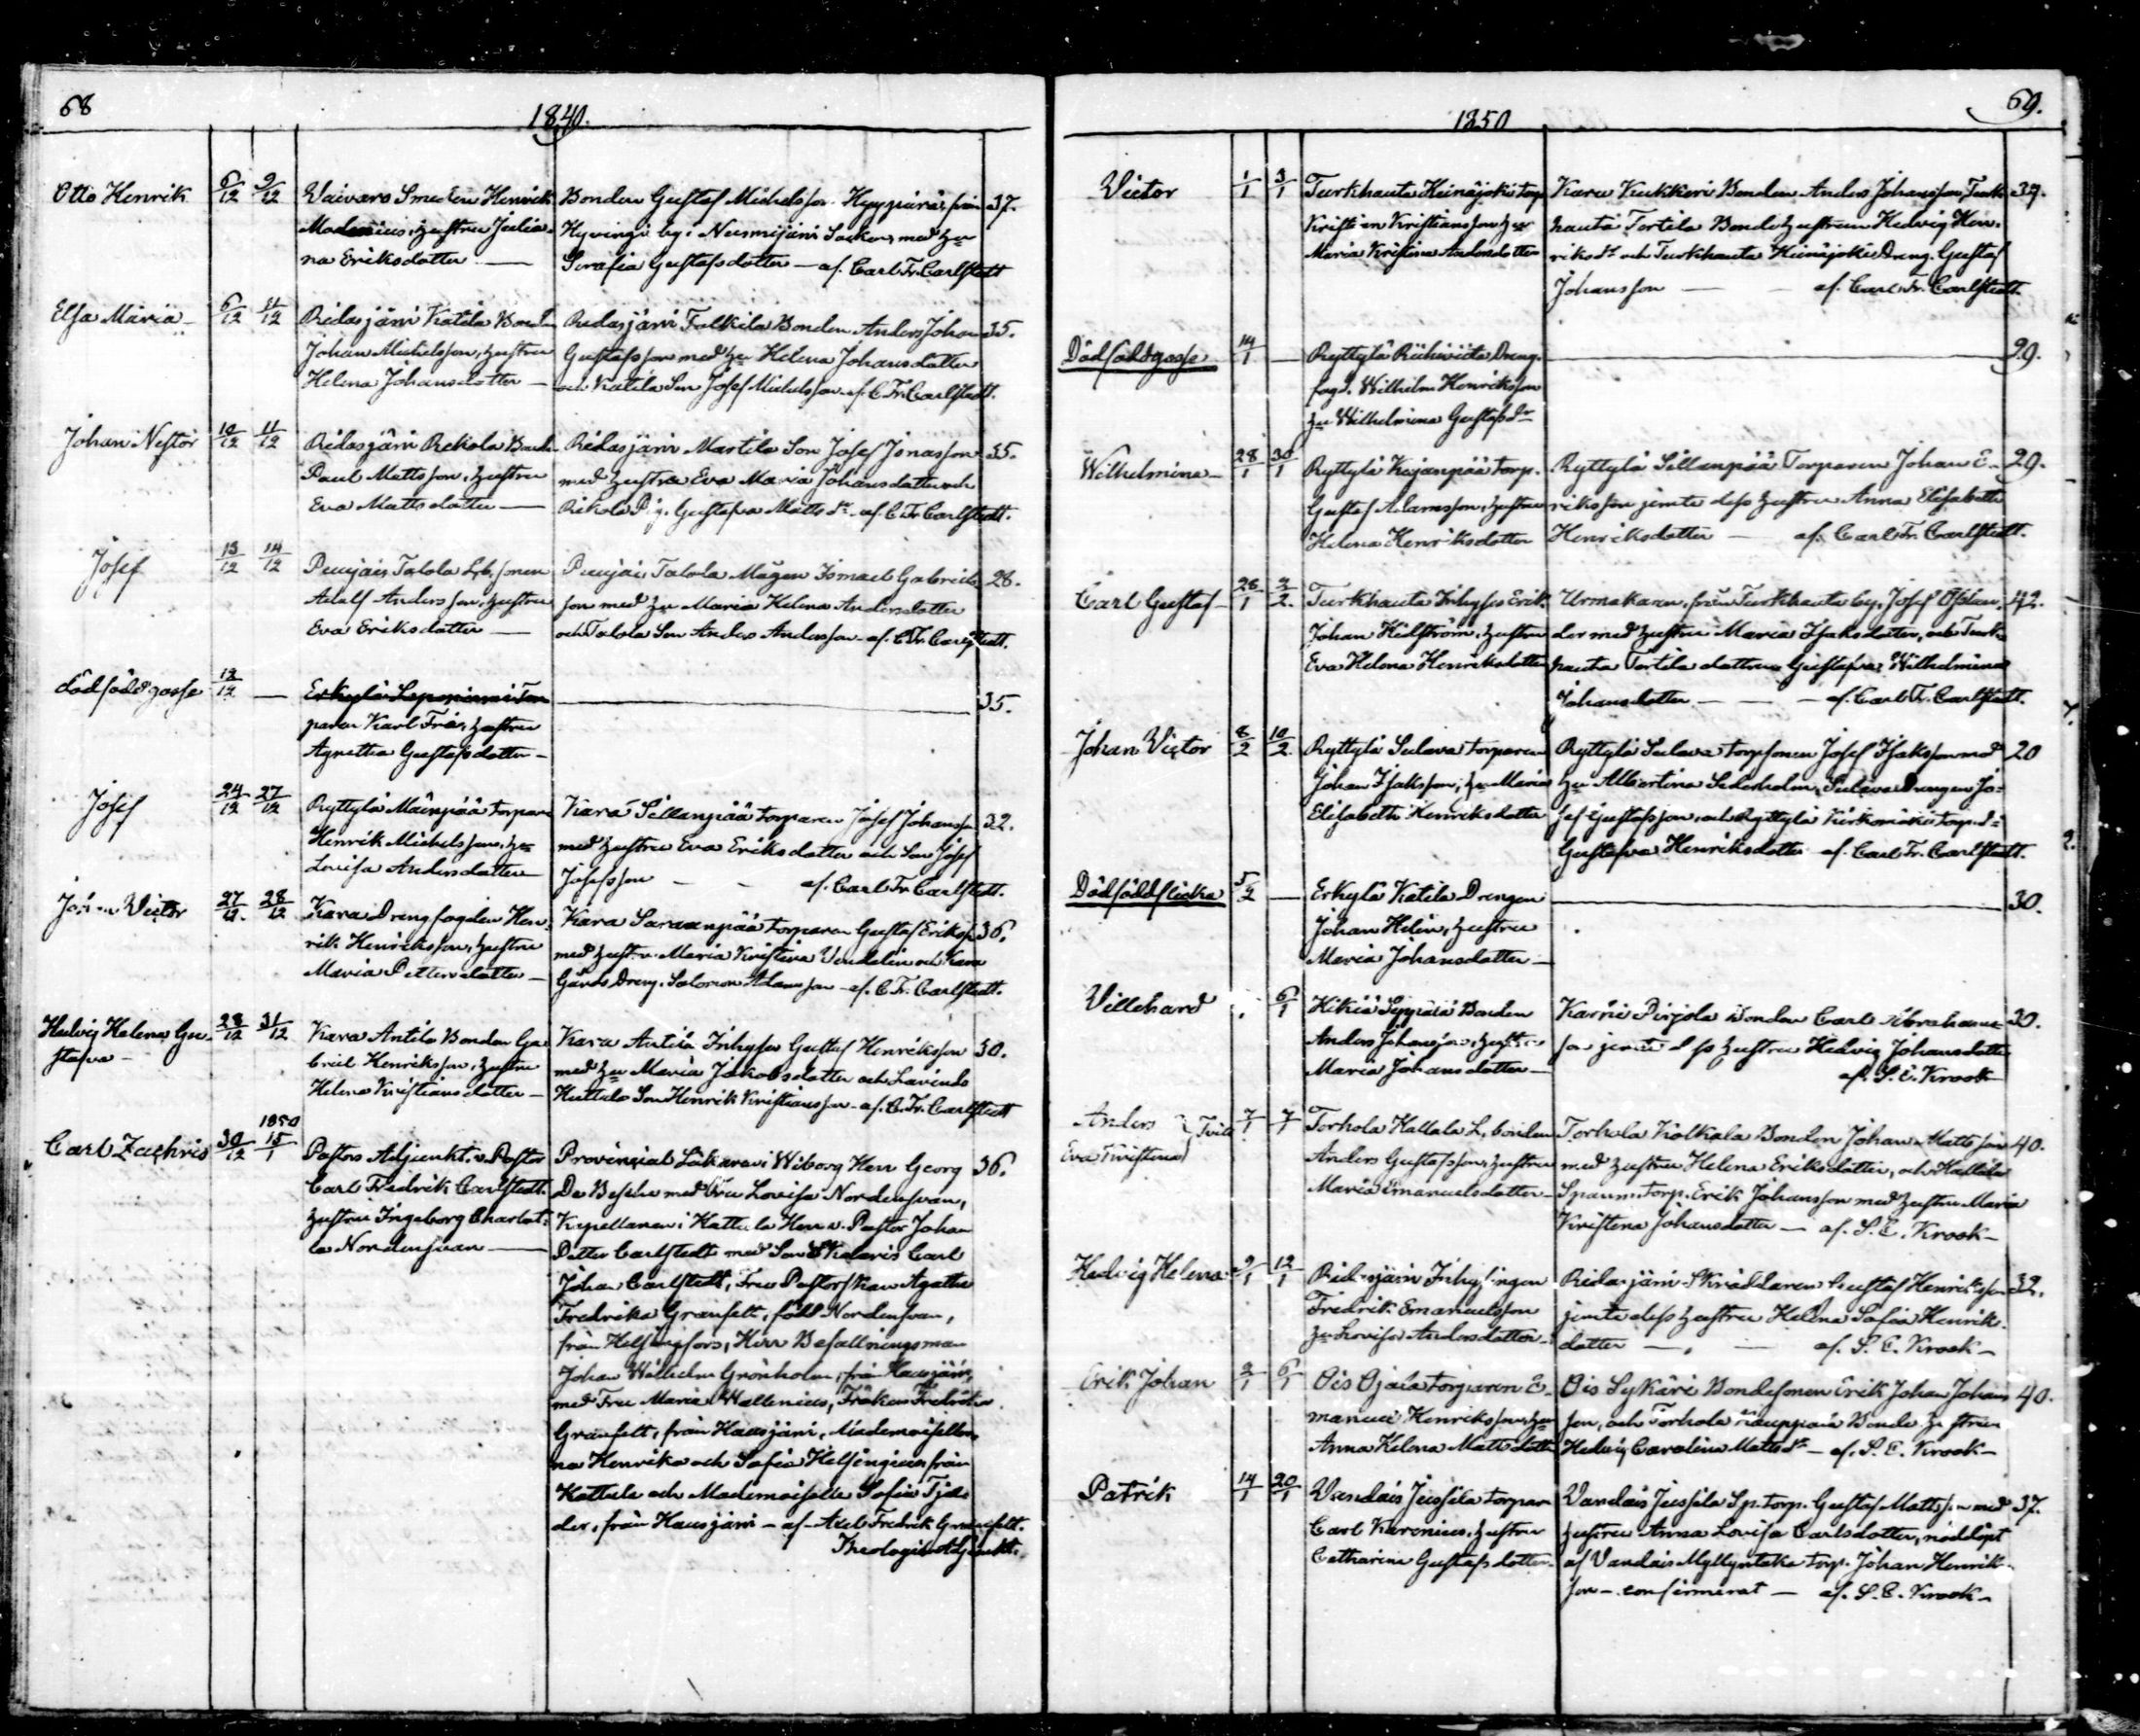 68
1840.
Otto Henrik 6/12 9/12 Waivaro Smeden Henrik Bonden Gustaf Michelsson Hyppiäräs från 37.
Modenius, hustru Julia- Hyvingä by i Nurmijärvi Socken, med hu
na Eriksdotter — Serafia Gustafsdotter — af. Carl Fr. Carlstedt
Elsa Maria 6/12 11/12 Ridasjärvi Katila Bond. Ridasjärvi Falkila Bonden Anders Johan 35.
Johan Michelsson, hustru Gustafsson med hu Helena Johansdotter
Helena Johansdotter — och Katila Son Josef Michelsson af. C. Fr. Carlstedt.
Johan Nestor 10/12 11/12 Ridasjärvi Rekola Bond. Ridasjärvi Martila Son Josef Jonasson 35.
Paul Mattsson, hustru med hustru Eva Maria Johansdotter och
Eva Mattsdotter — Rekola Pig. Gustafva Matts dr. af. C. Fr. Carlstedt.
Josef 13/12 14/12 Penjais Talola Lb. sonen Penjais Talola Mågen Ismael Gabriels 28.
Adolf Andersson, hustru son med hu Maria Helena Andersdotter
Eva Eriksdotter — och Talola Son Anders Andersson af. C. Fr. Carlstedt.
dödfödd gosse 12/12 — Erkylä Tor 35.
paren Karl Fri, hustru
Agnetha Gustafsdotter —
Josef 24/12 27/12 Ryttylä Mäenpää torpare Kara Sillanpää torparen Josef Johansson 32.
Henrik Michelsson, hu med hustru Eva Eriksdotter och Son Josef
Lovisa Andersdotter Josefsson — — af. Carl Fr. Carlstedt.
Johan Victor 27/12. 28/12 Kara Drengfogden Hen- Kara Saraanpää torparen Gustaf Eriksson 36.
rik Henriksson, hustru med hustru Maria Kristina Vendelin och Kara
Maria Pettersdotter — Gårds Dreng. Salomon Adamsson — af. C. Fr. Carlstedt.
Hedvig Helena Gu- 28/12 31/12 Kara Antila Bonden Ga- Kara Antila Inhyses Gustaf Henriksson 30.
stafva — briel Henriksson, hustru med hu Maria Jakobsdotter och Lavinto
Helena Kristiansdotter — Huttula Son Henrik Kristiansson — af. C. Fr. Carlstedt
1850
Carl Zachris 30/12 15/1 Pastors Adjunkt. v. Pastor Provincial Läkaren i Wiborg Herr Georg 36.
Carl Fredrik Carlstedt. De Besche med Fru Lovisa Nordensvan,
hustru Ingeborg Charlot- Kapellanen i Hattula Herr v. Pastor Johan
ta Nordensvan — Petter Carlstedt med Son Skolaris Carl
Johan Carlstedt, Fru Pastorskan Agatha
Fredrika Granfelt, född Nordensvan,
från Helsingfors, Herr Befallningsman
Johan Wilhelm Grönholm, från Hausjärvi,
med Fru Maria Wallenius, Fröken Fredrika
Granfelt, från Hausjärvi, Mademoiseller-
na Henrika och Sofia Helsingius från
Hattula och Mademoiselle Sofia Tjä-
der, från Hausjärvi — af Axel Fredrik Granfelt.
Theologie Adjunkt.
69.
1850
Victor 1/1 3/1 Turkhauta Heinäjoki torp Kara Kukkori Bonden Anders Johansson, Turk- 39.
Kristian Kristiansson hu hauta Tortila Bondehustrun Hedvig Hen-
Maria Kristina Andersdotter riks dr och Turkhauta Heinäjoki Dreng. Gustaf
Johansson — — af. Carl Fr. Carlstedt.
Dödfödd gosse 14/1 — Ryttylä Riihiviita Dreng- 29.
fogd. Wilhelm Henriksson
hu Wilhelmina Gustafs dr
Wilhelmina — 28/1 30/1 Ryttylä Kujanpää torp. Ryttylä Sillanpää Torparen Johan E- 29.
Gustaf Adamsson, hustru riksson jemte dess hustru Anna Elisabeth
Helena Henriksdotter Henriksdotter — af. Carl Fr. Carlstedt.
Carl Gustaf — 28/1 2/2. Turkhauta Inhyses Erik Urmakaren från Turkhauta by, Josef Öhlan- 42.
Johan Hellström, hustru der med hustru Maria Isaksdotter, och Turk-
Eva Helena Henriksdotter hauta Tortila dottren Gustafva Wilhelmina
Johansdotter — — — af. Carl Fr. Carlstedt.
Johan Victor 8/2 10/2. Ryttylä Sulava torparen Ryttylä Sulava torpsonen Josef Isaksson med 20
Johan Isaksson, hu Maria hu Albertina Sederholm, Sulava Drengen Jo-
Elisabeth Henriksdotter sef Gustafsson, och Ryttylä Kirkomäki torp. dr
Gustafva Henriksdotter af. Carl Fr. Carlstedt.
Dödfödd flicka 5/2 — Erkylä Katila Drengen 30.
Johan Helin, hustru
Maria Johansdotter —
Villehard 6/1 Hikiä Seppälä Bonden Karri Pirjola Bonden Carl Abrahams- 30.
Anders Johansson, hustru son jemte dess hustru Hedvig Johansdotter
Maria Johansdotter — af. S. E. Krook
Anders } Tvill 7/1 7/1 Torhola Hallala L. bonden Torhola Kolkala Bonden Johan Mattsson 40.
Eva Kristina Anders Gustafsson, hustru med hustru Helena Eriksdotter, och Hallala
Maria Emanuelsdotter — Spanm. torp. Erik Johansson med hustru Maria
Kristina Johansdotter — af. S. E. Krook —
Hedvig Helena 9/1 12/1 Ridasjärvi Inhysingen Ridasjärvi Skräddaren Gustaf Henriksson 32.
Fredrik Emanuelsson jemte dess hustru Helena Sofia Henriks-
hu Lovisa Andersdotter — dotter — — af. S. E. Krook —
Erik Johan 2/1 6/1 Ois Ojala torparen E- Ois Sykäri Bondesonen Erik Johan Johans- 40.
manuel Henriksson, hu son, och Torhola Bonde hustrun
Anna Helena Mattsdotter Hedvig Carolina Matts dr — af. S. E. Krook —
Patrik 14/1 20/1 Vandais Jussila torpar. Vandais Jussila Sp. torp. Gustaf Mattsson med 37.
Carl Karenius, hustru hustru Anna Lovisa Carlsdotter, nöddöpt
Catharina Gustafsdotter. af Vandais torp. Johan Henrik-
son — confirmerat — af. S. E. Krook —